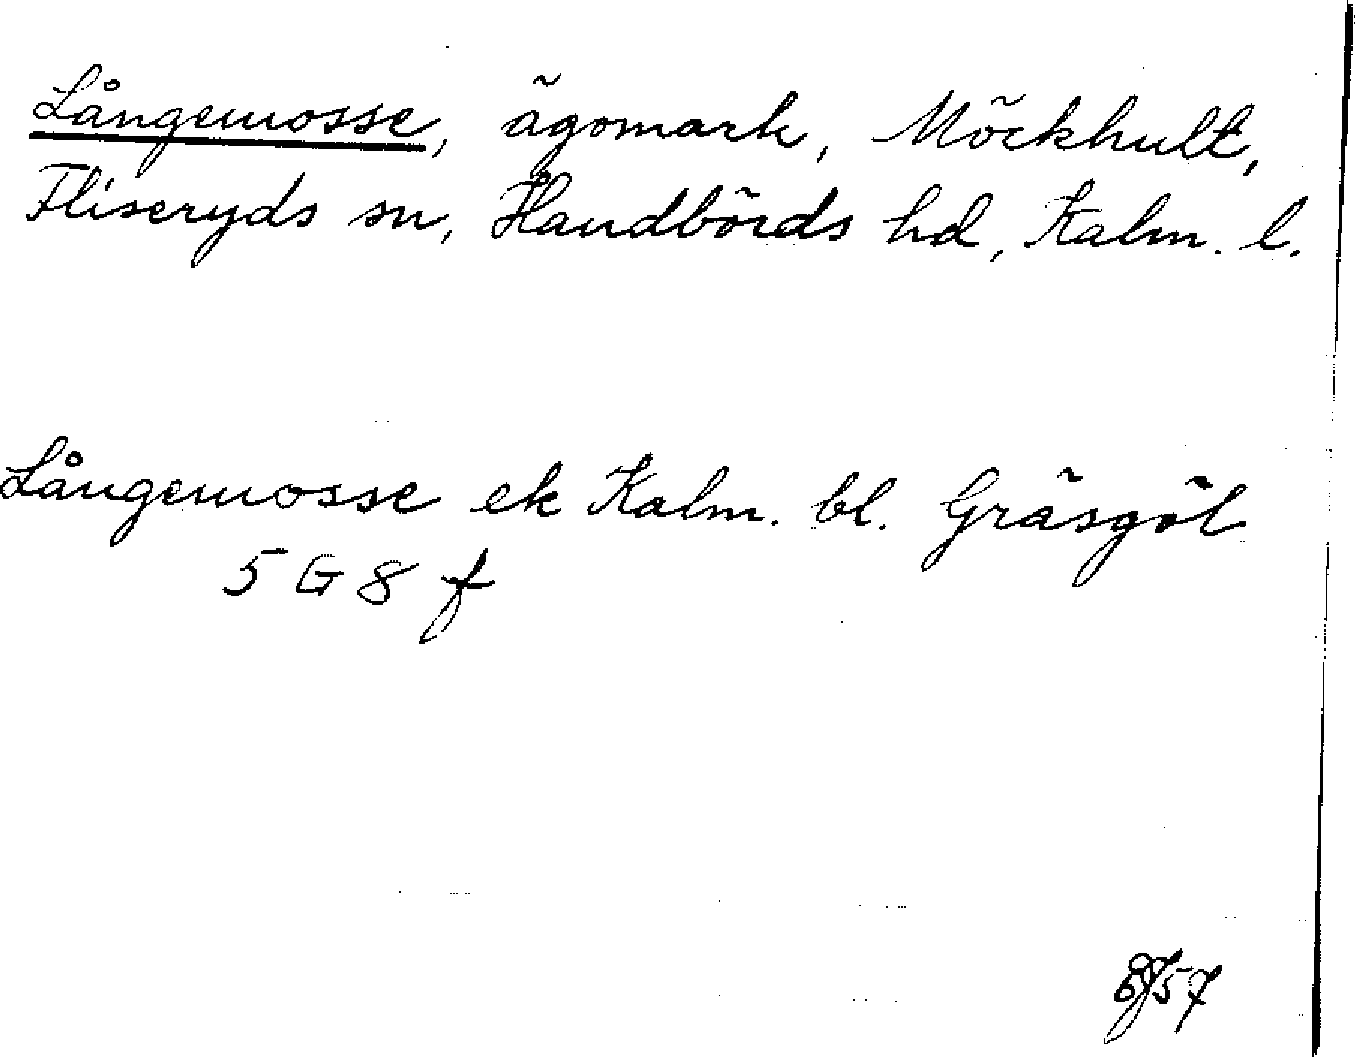 Långemosse, ägomark, Möckhult,
Fliseryds sn, Handbörds hd, Kalm. l.
Långemosse ek Kalm. bl. Gräsgöl
5 G 8 f